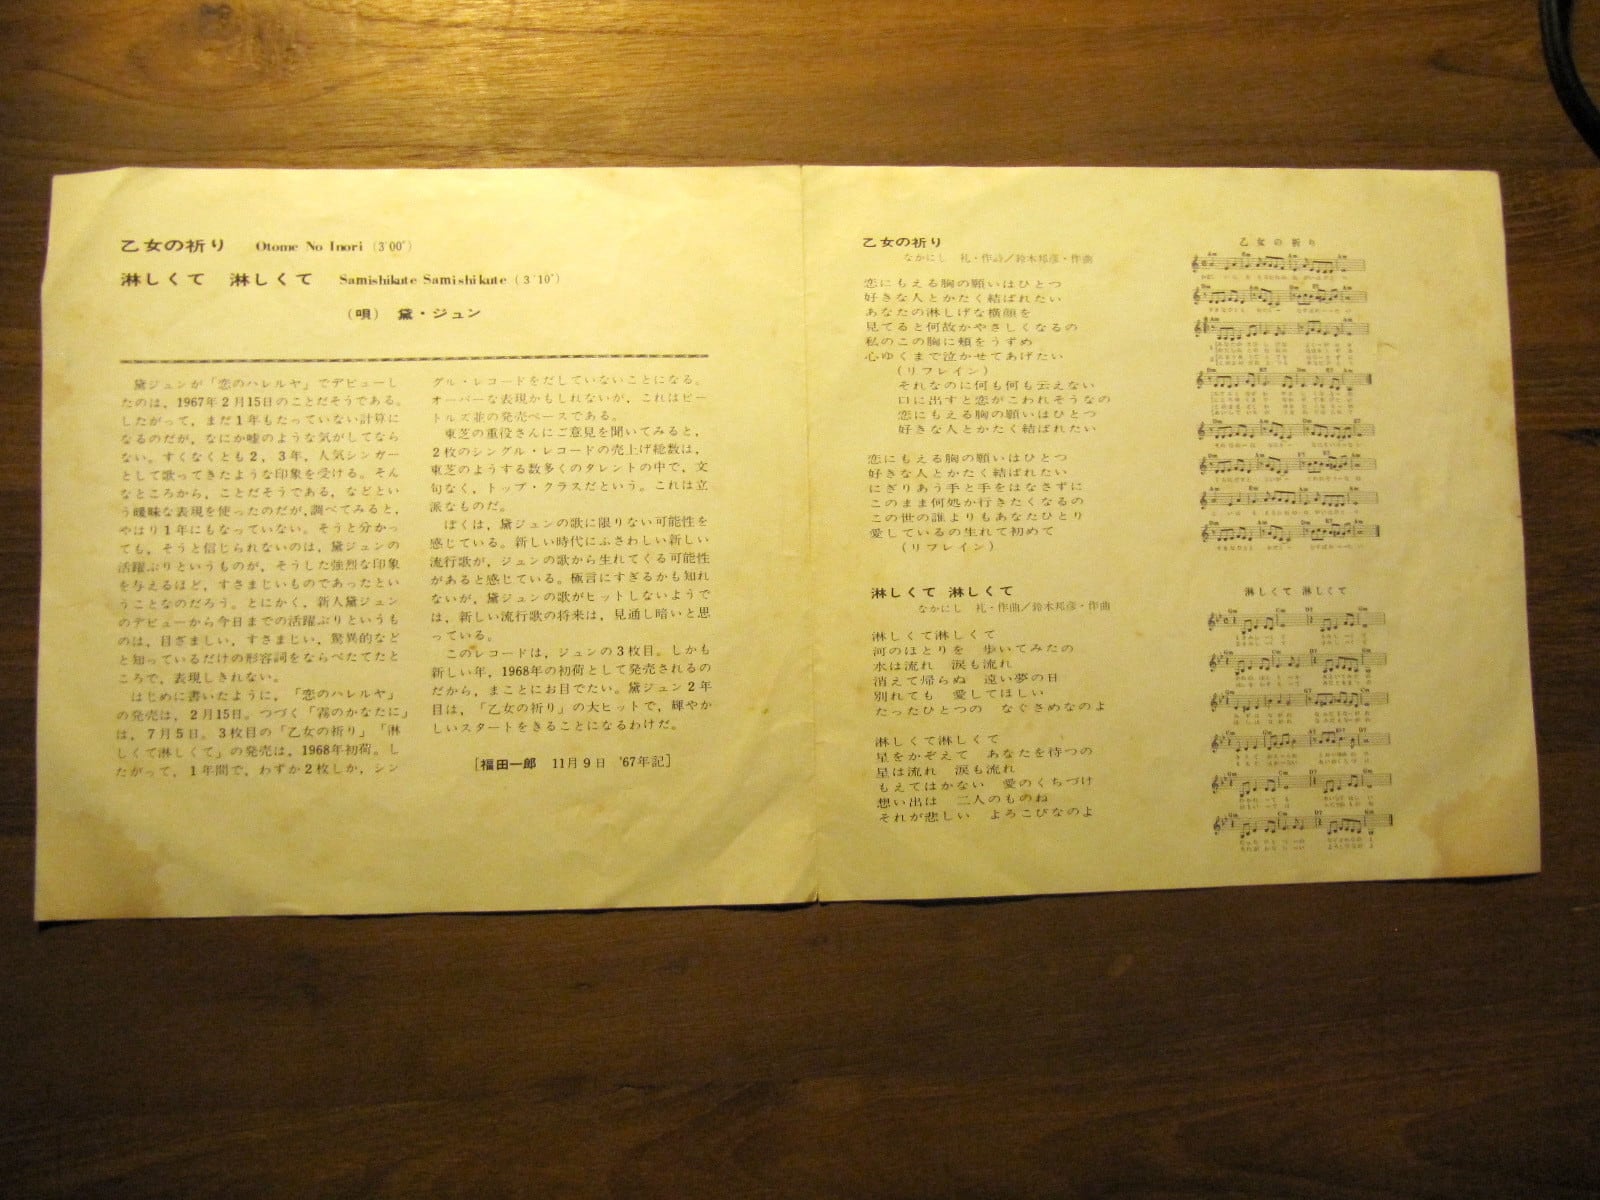 乙女の祈り Otome No Inori (3′00″)
淋しくて 淋しくて Samishikute Samishikute (3′10″)
(唄) 黛・ジュン
黛ジュンが「恋のハレルヤ」でデビューし
たのは，1967年2月15日のことだそうである。
したがって，まだ1年もたっていない計算に
なるのだが，なにか嘘のような気がしてなら
ない。すくなくとも2，3年，人気シンガー
として歌ってきたような印象を受ける。そん
なところから，ことだそうである，などとい
う曖昧な表現を使ったのだが，調べてみると，
やはり1年にもなっていない。そうと分かっ
ても，そうと信じられないのは，黛ジュンの
活躍ぶりというものが，そうした強烈な印象
を与えるほど，すさまじいものであったとい
うことなのだろう。とにかく，新人黛ジュン
のデビューから今日までの活躍ぶりというも
のは，目ざましい，すさまじい，驚異的など
と知っているだけの形容詞をならべたてたと
ころで，表現しきれない。
はじめに書いたように，「恋のハレルヤ」
の発売は，2月15日。つづく「霧のかなたに」
は，7月5日。3枚目の「乙女の祈り」「淋
しくて淋しくて」の発売は，1968年初荷。し
たがって，1年間で，わずか2枚しか，シン
グル・レコードをだしていないことになる。
オーバーな表現かもしれないが，これはビー
トルズ並の発売ペースである。
東芝の重役さんにご意見を聞いてみると，
2枚のシングル・レコードの売上げ総数は，
東芝のようする数多くのタレントの中で，文
句なく，トップ・クラスだという。これは立
派なものだ。
ぼくは，黛ジュンの歌に限りない可能性を
感じている。新しい時代にふさわしい新しい
流行歌が，ジュンの歌から生れてくる可能性
があると感じている。極言にすぎるかも知れ
ないが，黛ジュンの歌がヒットしないようで
は，新しい流行歌の将来は，見通し暗いと思
っている。
このレコードは，ジュンの3枚目。しかも
新しい年，1968年の初荷として発売されるの
だから，まことにお目でたい。黛ジュン2年
目は，「乙女の祈り」の大ヒットで，輝やか
しいスタートをきることになるわけだ。
［福田一郎 11月9日 '67年記］
乙女の祈り
なかにし 礼・作詩／鈴木邦彦・作曲
恋にもえる胸の願いはひとつ
好きな人とかたく結ばれたい
あなたの淋しげな横顔を
見てると何故かやさしくなるの
私のこの胸に頬をうずめ
心ゆくまで泣かせてあげたい
(リフレイン)
それなのに何も何も云えない
口に出すと恋がこわれそうなの
恋にもえる胸の願いはひとつ
好きな人とかたく結ばれたい
恋にもえる胸の願いはひとつ
好きな人とかたく結ばれたい
にぎりあう手と手をはなさずに
このまま何処か行きたくなるの
この世の誰よりもあなたひとり
愛しているの生れて初めて
(リフレイン)
淋しくて 淋しくて
なかにし 礼・作曲／鈴木邦彦・作曲
淋しくて淋しくて
河のほとりを 歩いてみたの
水は流れ 涙も流れ
消えて帰らぬ 遠い夢の日
別れても 愛してほしい
たったひとつの なぐさめなのよ
淋しくて淋しくて
星をかぞえて あなたを待つの
星は流れ 涙も流れ
もえてはかない 愛のくちづけ
想い出は 二人のものね
それが悲しい よろこびなのよ
乙女の祈り
淋しくて 淋しくて